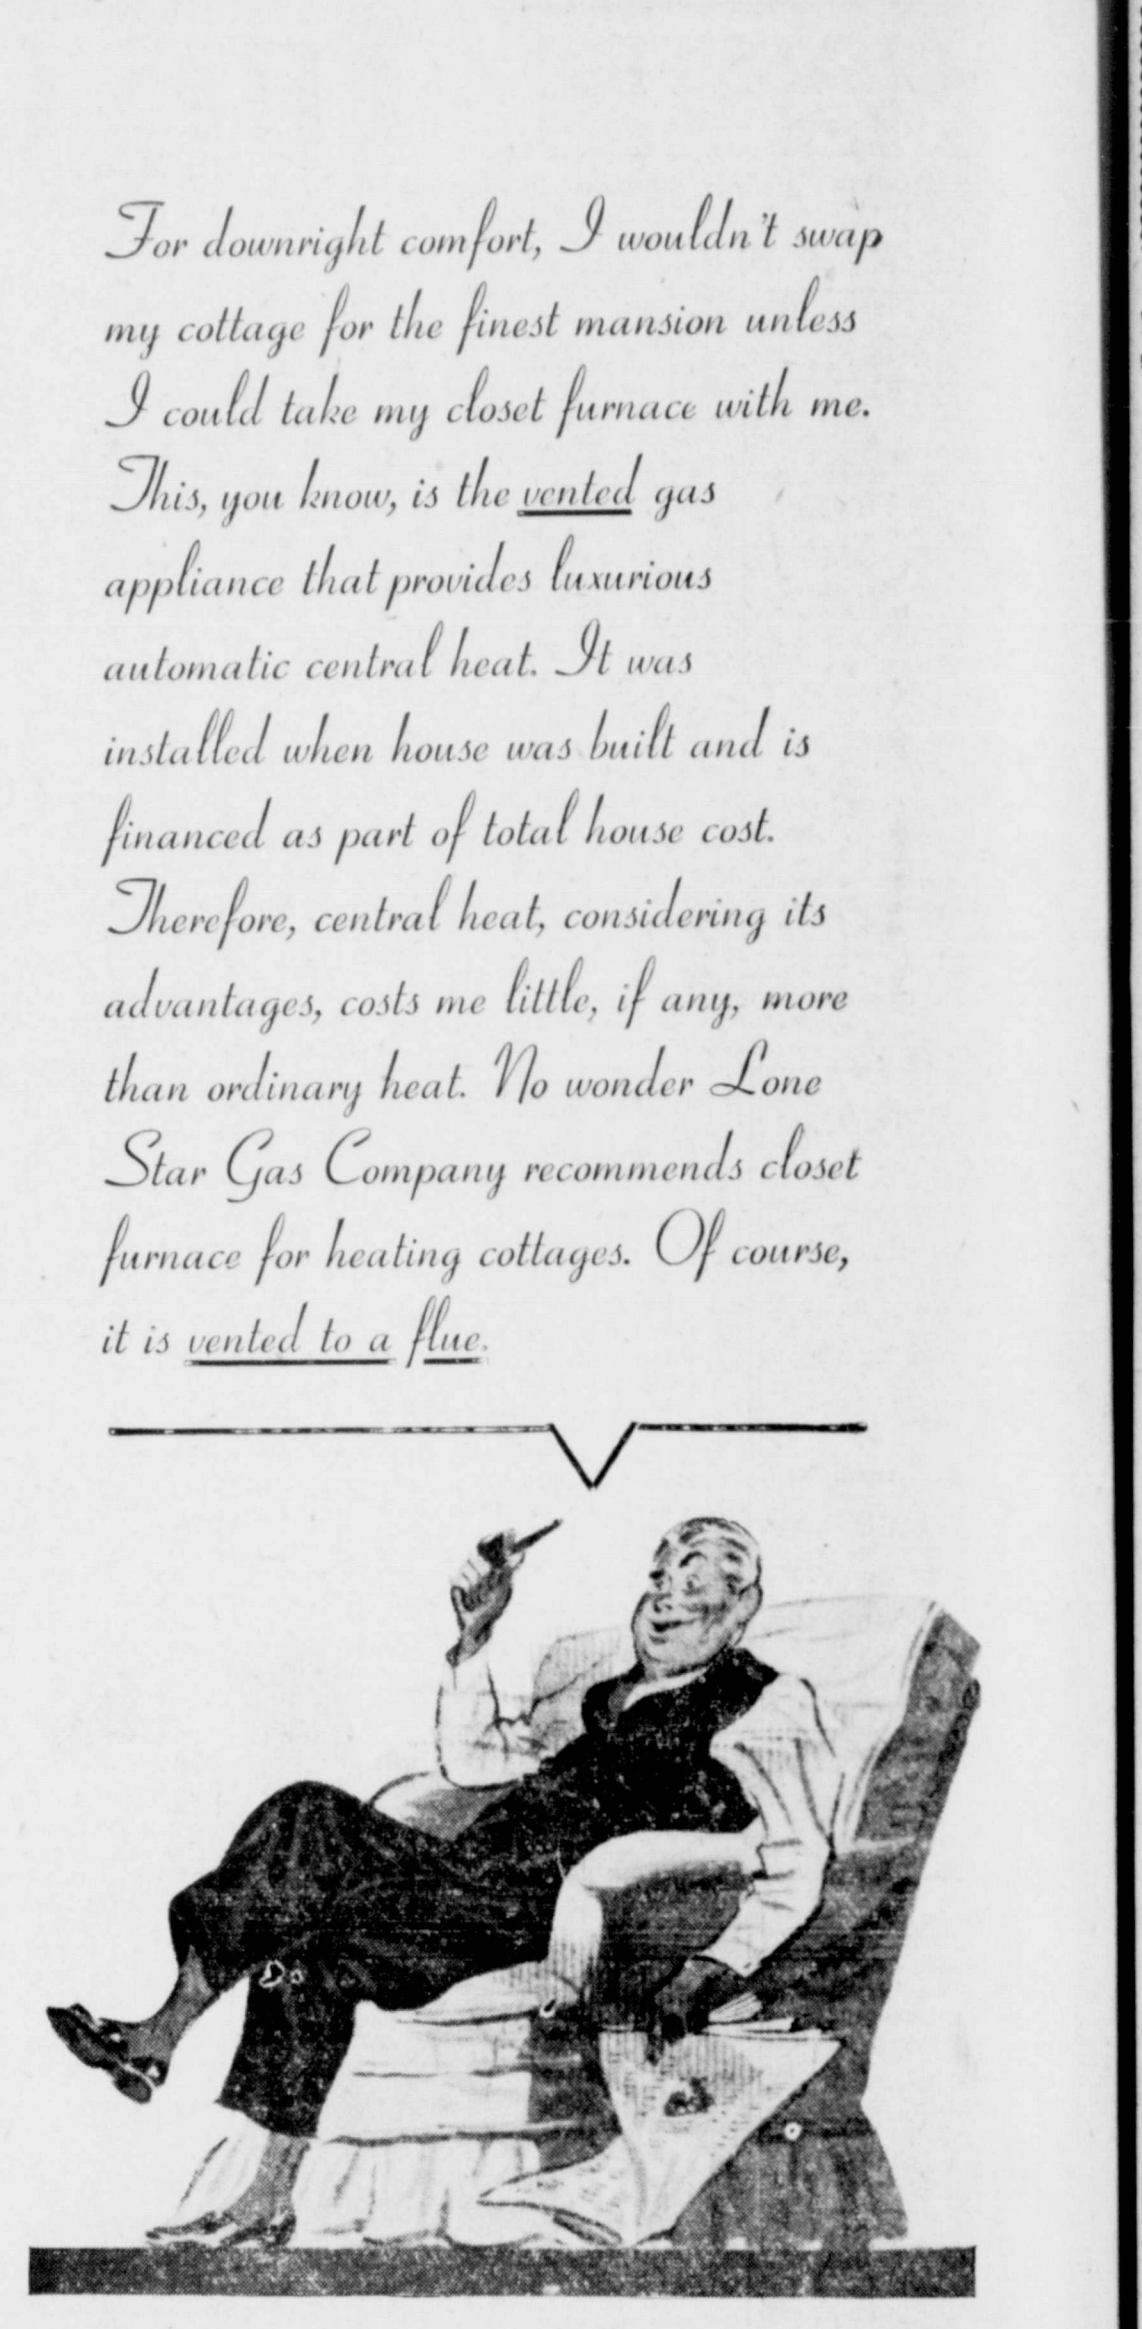 For downright comfort, I wouldn't swap
my cottage for the finest mansion unless
I could take my closet furnace with me.
This, you know, is the vented gas
appliance that provides luxurious
automatic central heat. It was
installed when house was built and is
financed as part of total house cost.
Therefore, central heat, considering its
advantages, costs me little, if any, more
than ordinary heat. No wonder Lone
Star Gas Company recommends closet
furnace for heating cottages. Of course,
it is vented to a flue.